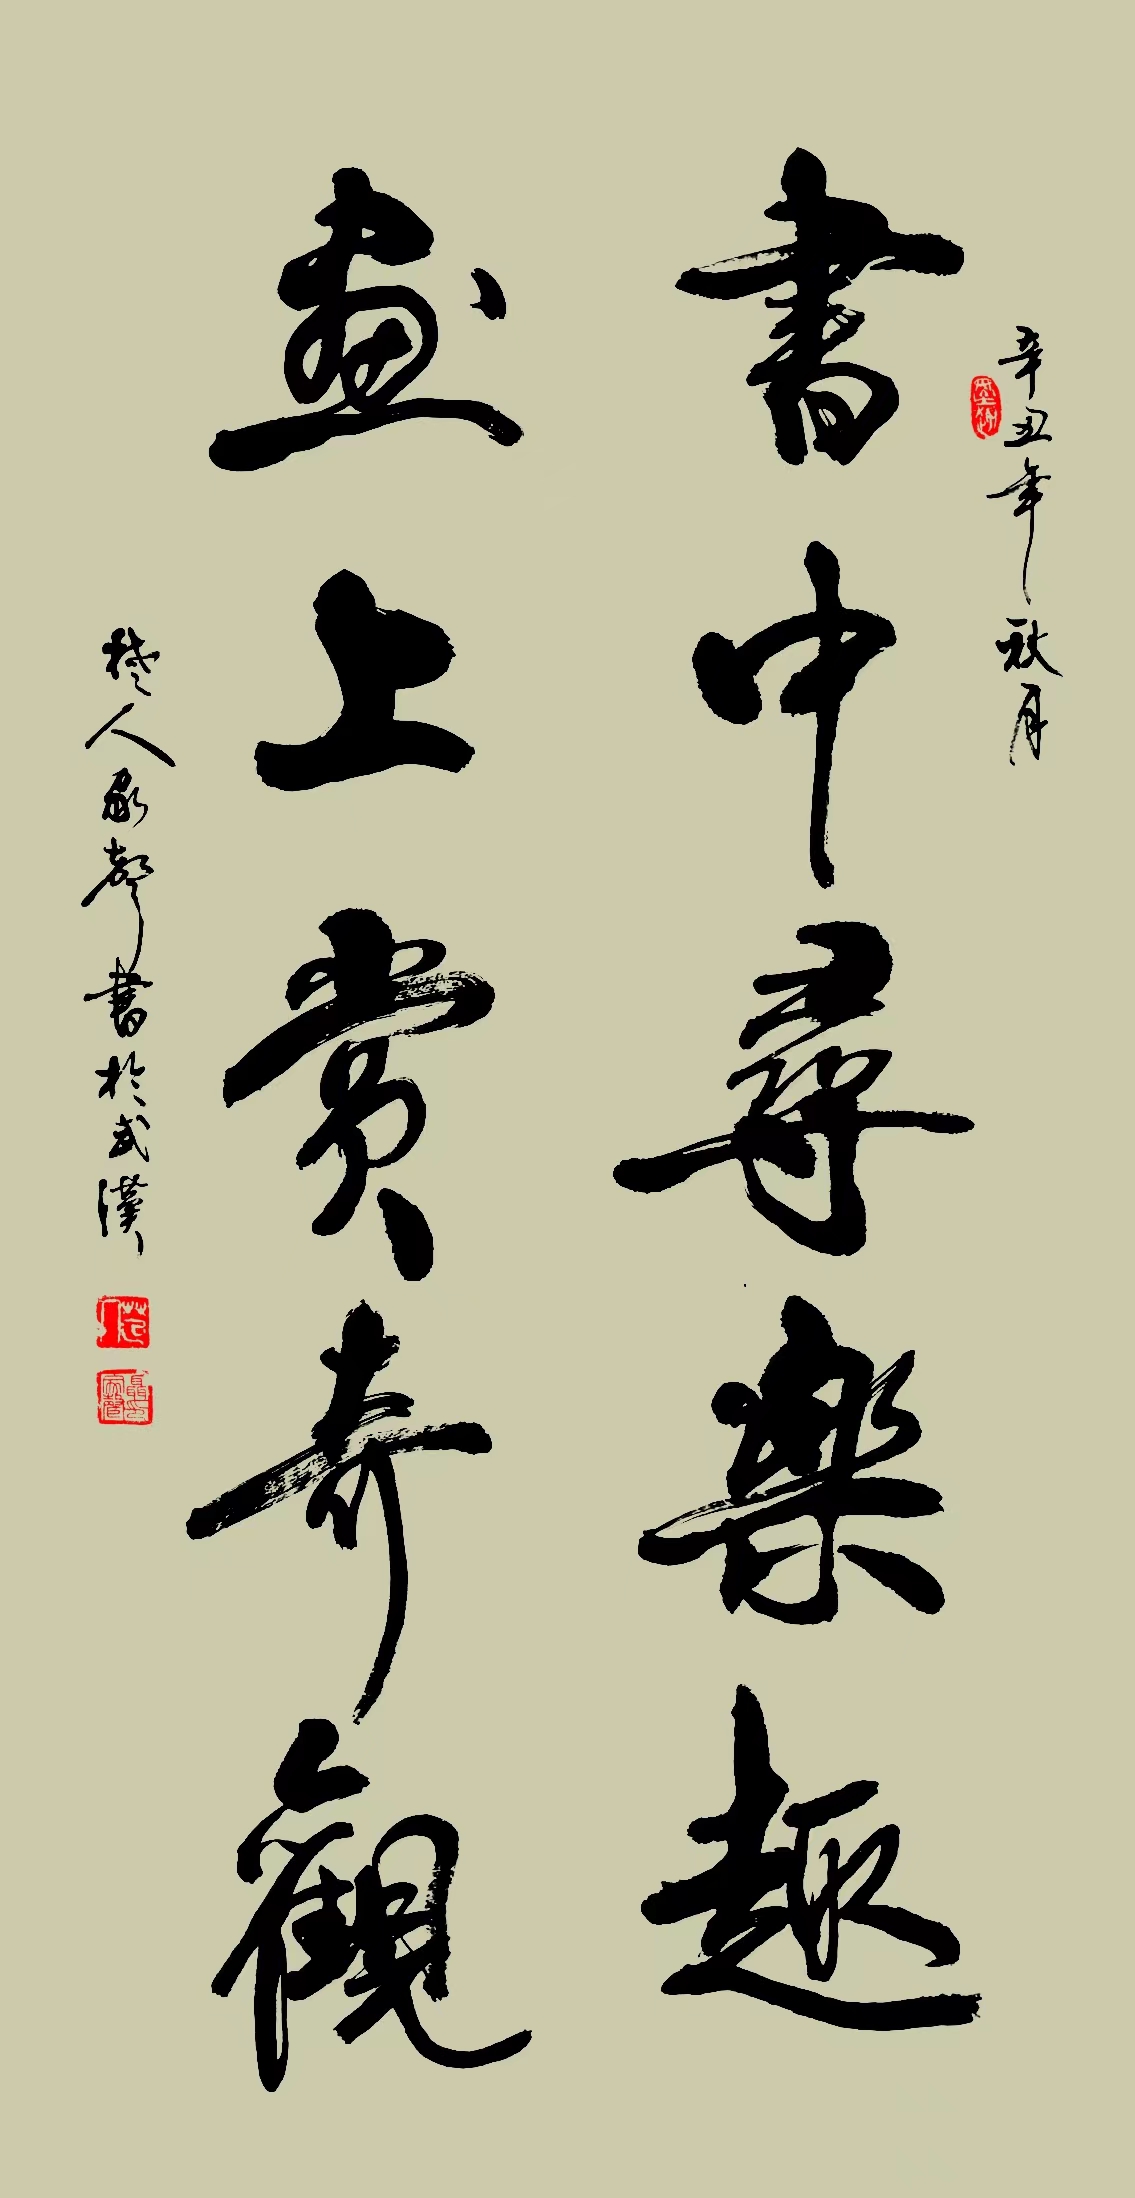 辛丑年秋月
書中尋樂趣
畫上賞奇觀
楚人家聲書於武漢